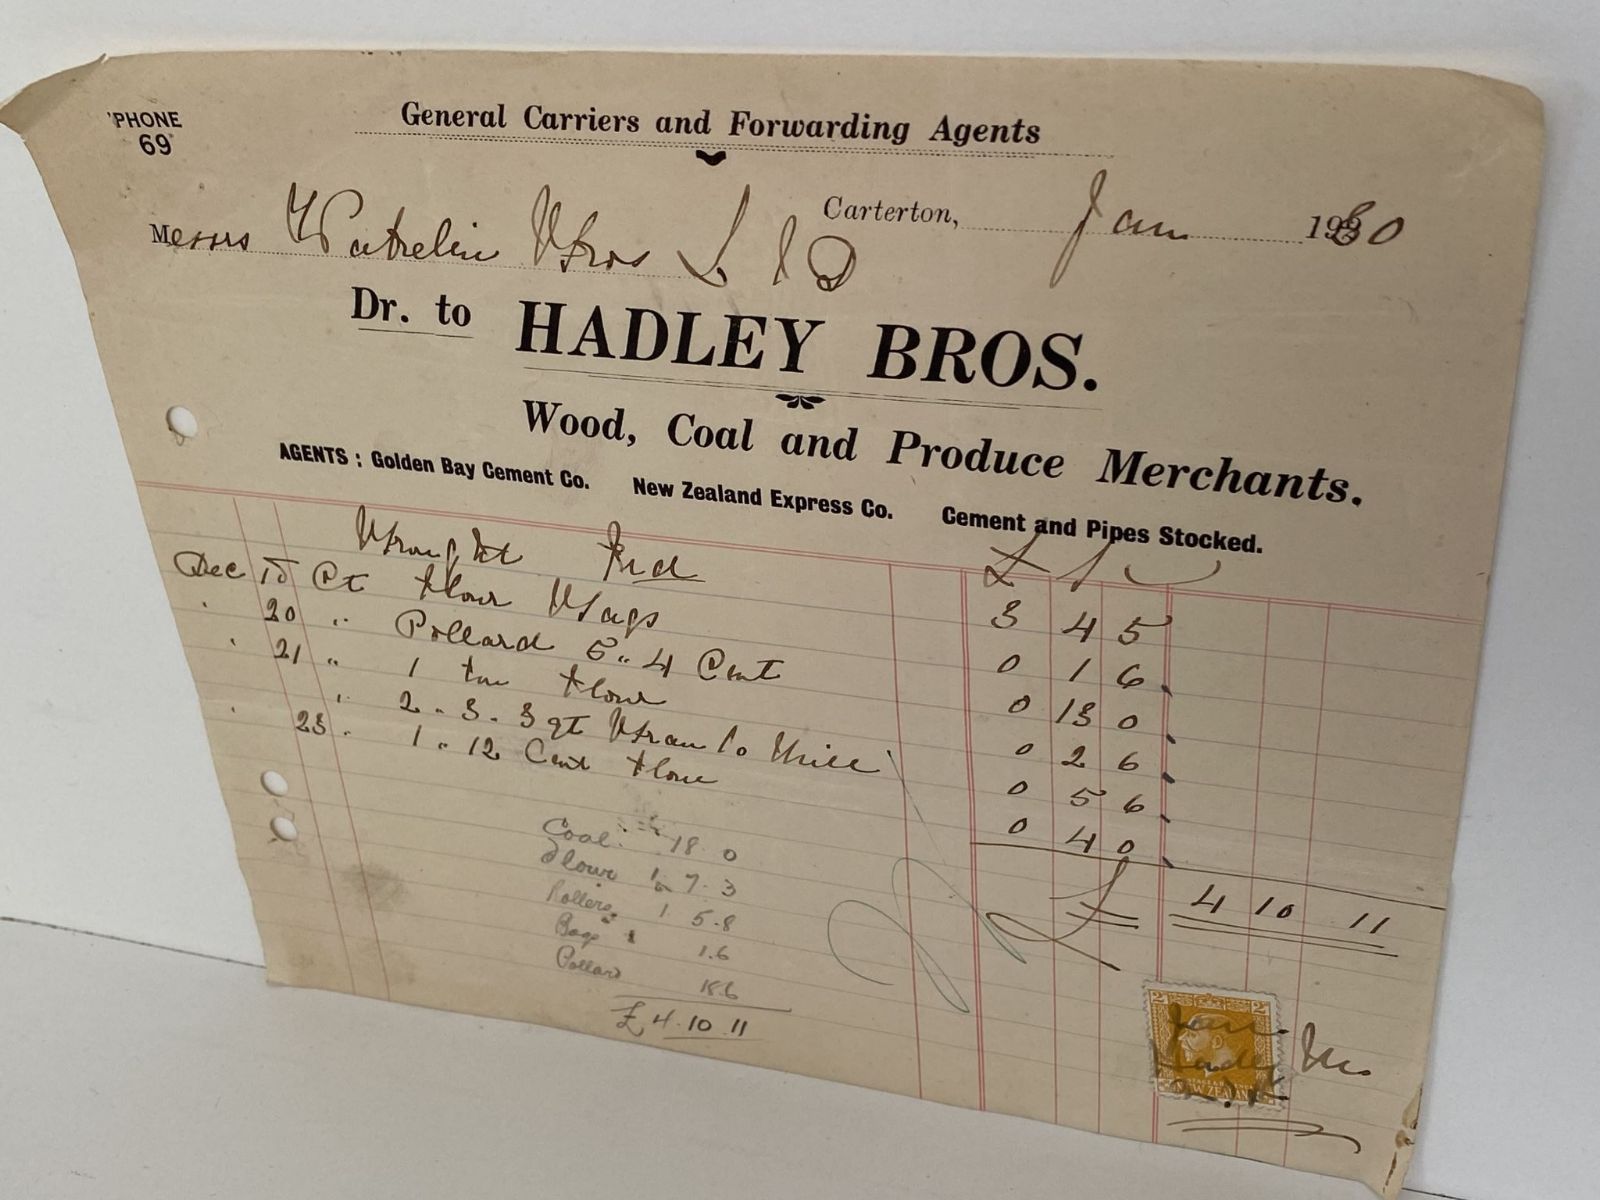 'PHONE
69
General Carriers and Forwarding Agents
Carterton, Jan 1930
Messrs Bros Ltd
Dr. to HADLEY BROS.
Wood, Coal and Produce Merchants.
AGENTS : Golden Bay Cement Co. New Zealand Express Co. Cement and Pipes Stocked.
Brought Fwd £ s 3 4 5
Dec Ct Flour Bags 0 1 6
20 " Pollard 5 " 4 Cwt 0 13 0
21 " 1 ton Flour 0 2 6
" 2 . 3 . 3 qt Bran 0 5 6
23 . 1 " 12 Cwt Flour 0 4 0
£ 4 10 11
Coal 18 0
Flour 1 7. 3
1 5.8
Bags 1.6
Pollard 18.6
£ 4.10.11
2 2
NEW ZEALAND